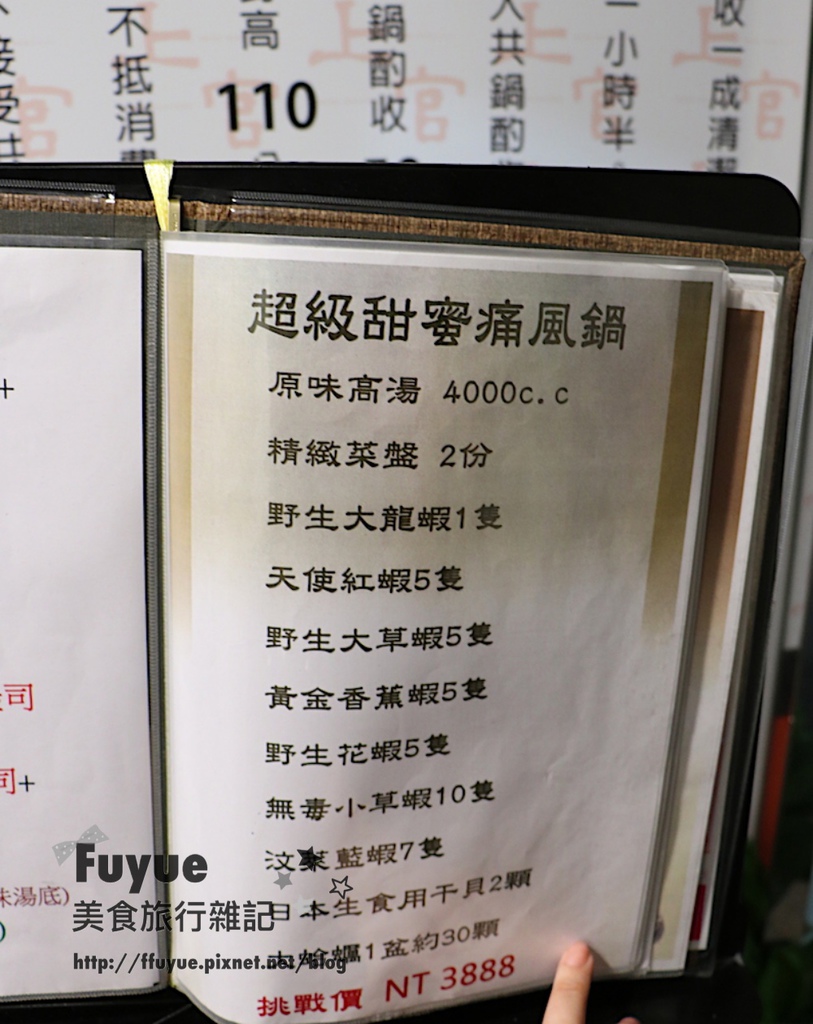 不抵消
高
110
鍋酌收
人共鍋酌
一小時半
收一成清潔
上官
上官
上官
超級甜蜜痛風鍋
原味高湯 4000c.c
精緻菜盤 2份
野生大龍蝦1隻
天使紅蝦5隻
野生大草蝦5隻
黃金香蕉蝦5隻
野生花蝦5隻
無毒小草蝦10隻
汶萊藍蝦7隻
日本生食用干貝2顆
蠣1盆約30顆
挑戰價 NT 3888
+
司
司+
湯底)
Fuyue
美食旅行雜記
http://ffuyue.pixnet.net/blog